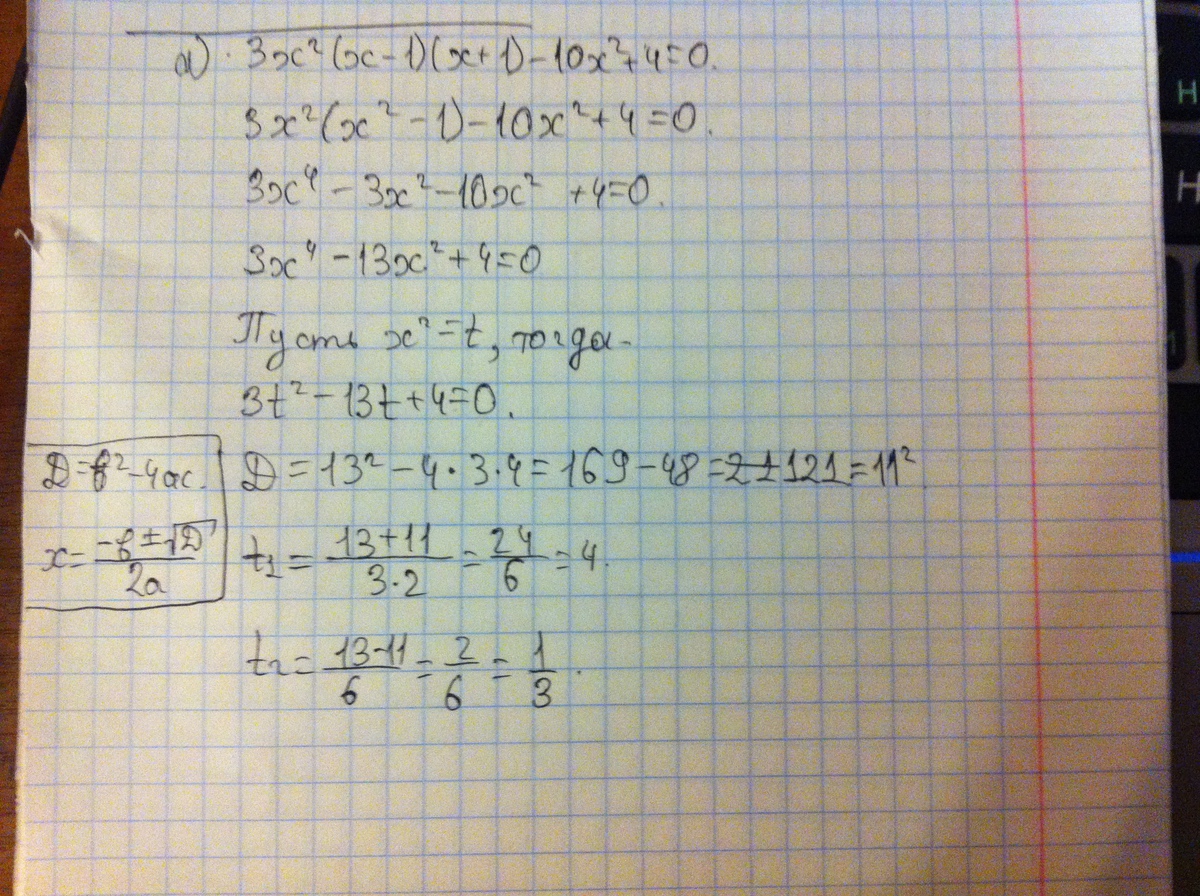 а) 3x²(x-1)(x+1)-10x²+4=0.
3x²(x²-1)-10x²+4=0.
3x⁴-3x²-10x²+4=0.
3x⁴-13x²+4=0
Пусть x²=t, тогда-
3t²-13t+4=0.
D=b²-4ac.
D=13²-4·3·4=169-48=121=11².
x=(-b±√D)/2a
t₁=(13+11)/(3·2)=24/6=4.
t₂=(13-11)/6=2/6=1/3.
Н
Н